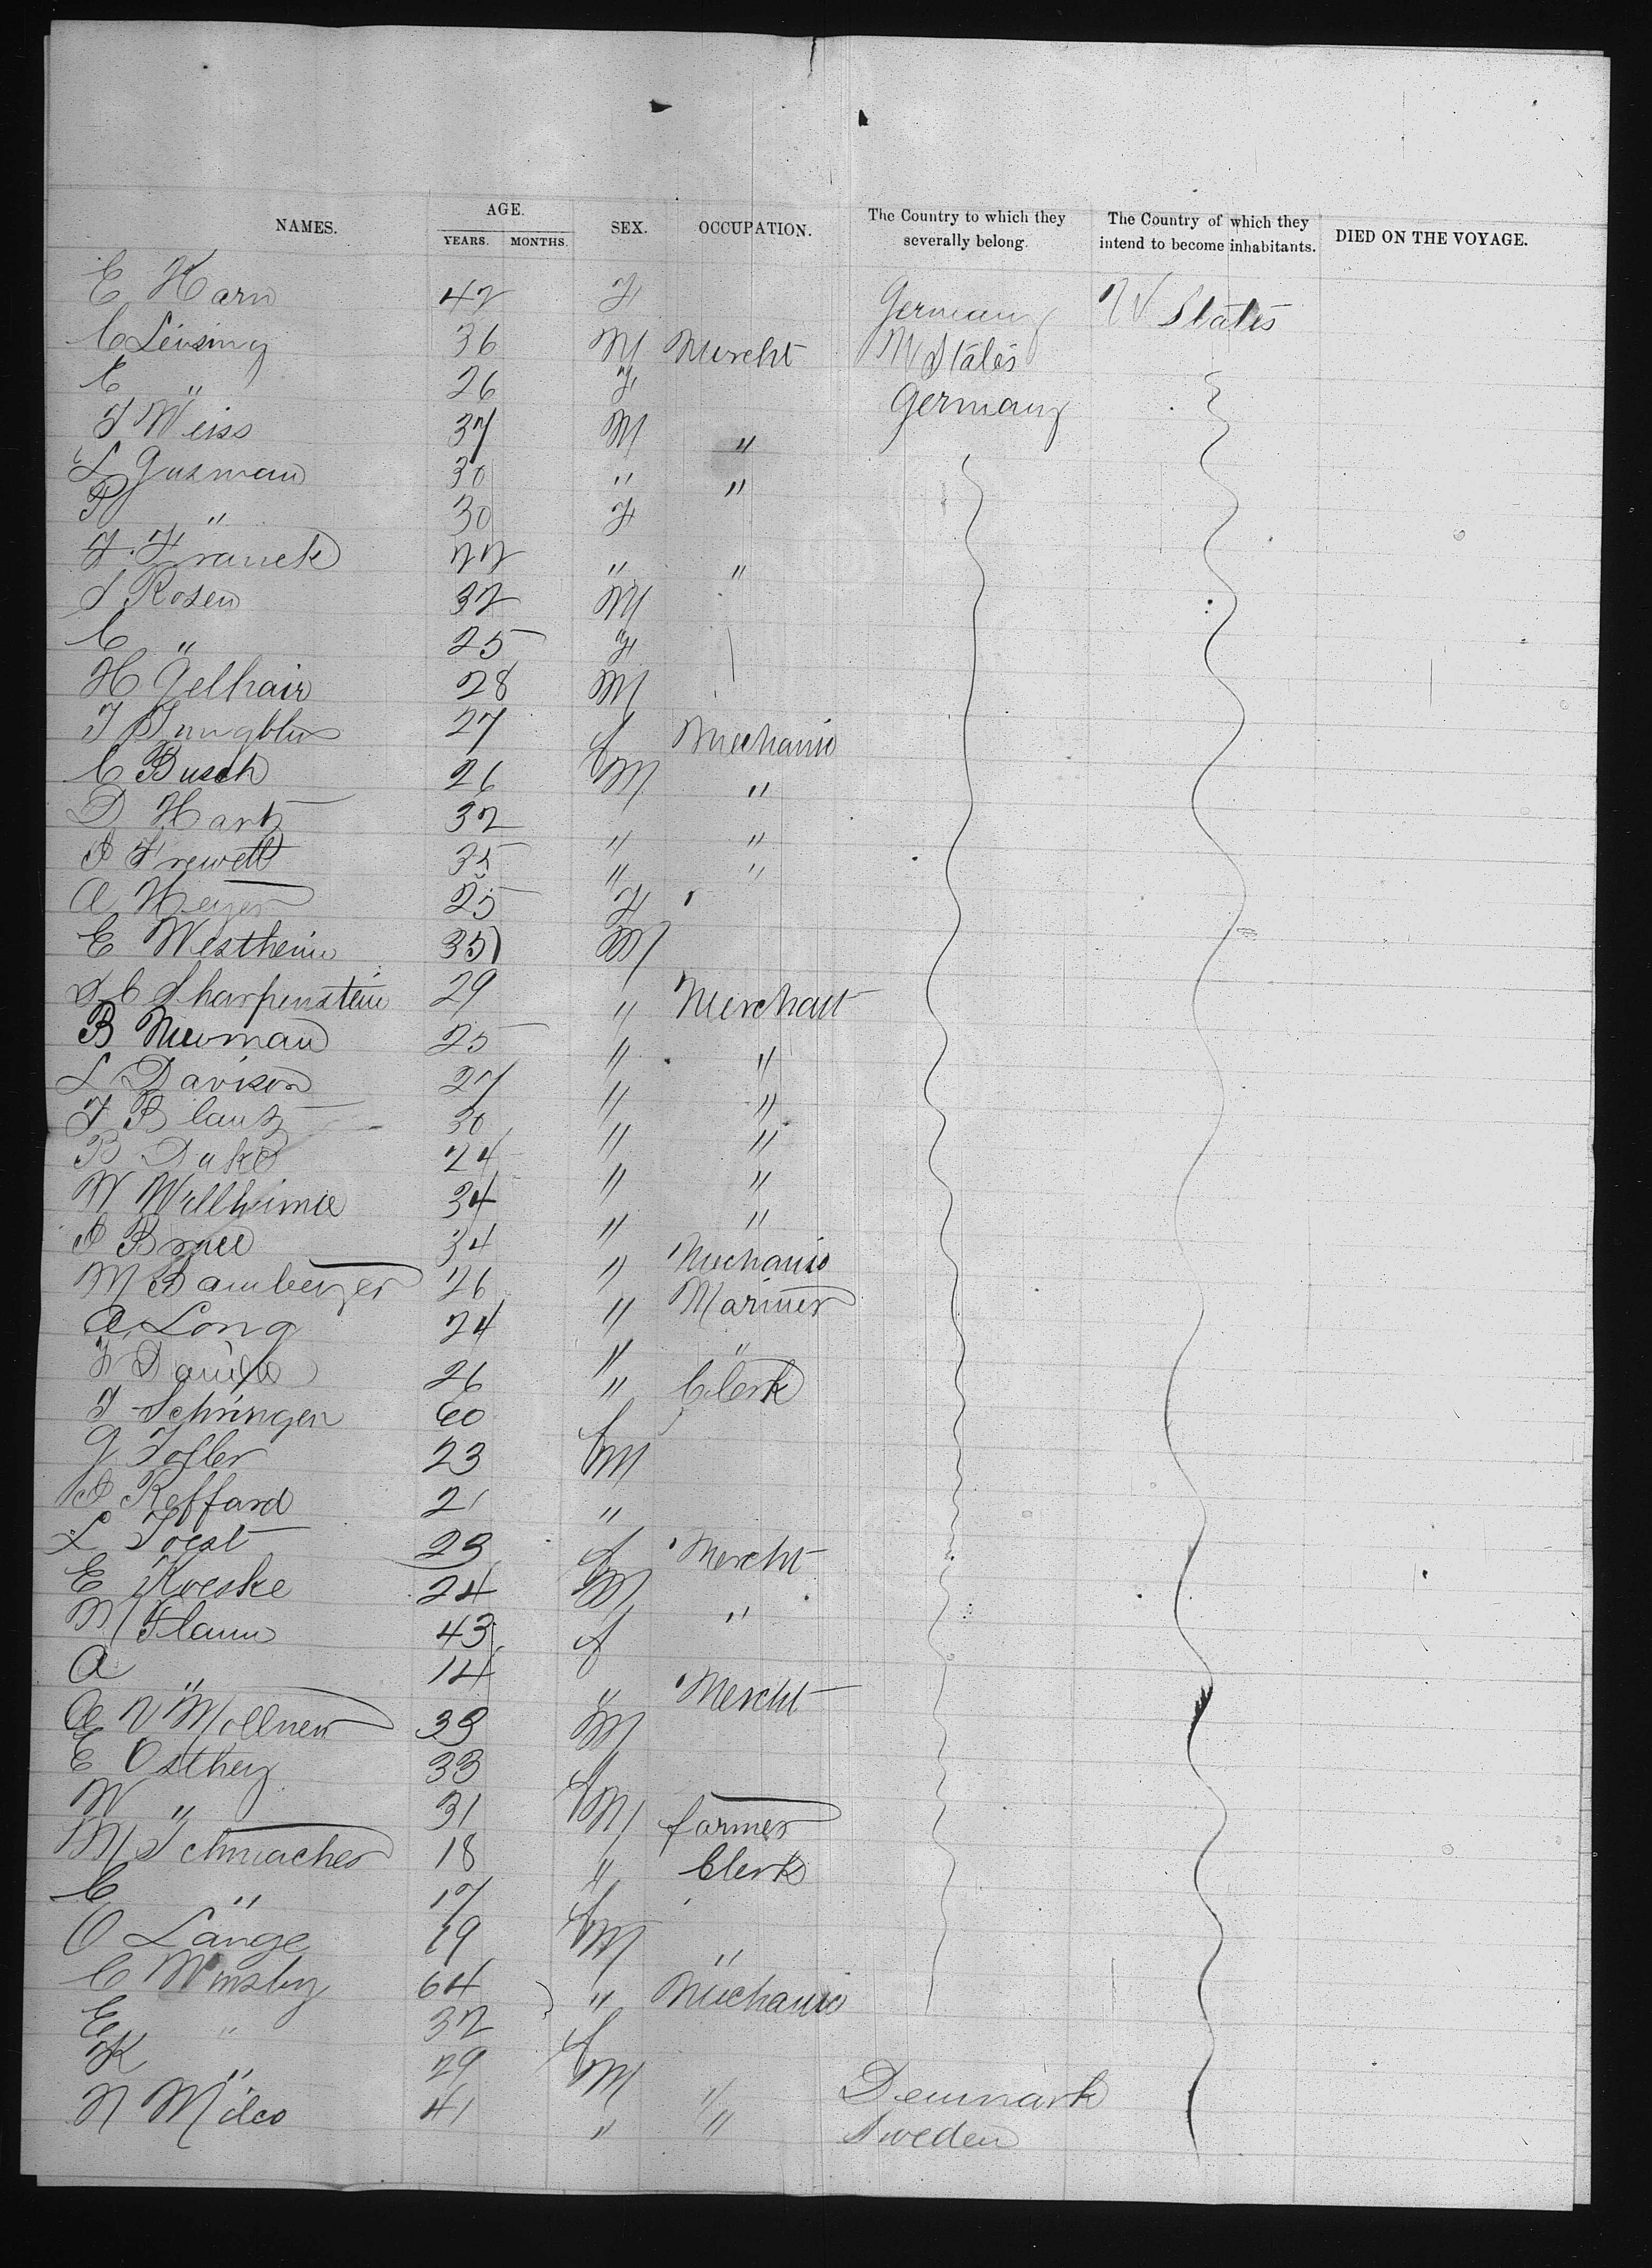 NAMES. AGE. YEARS. MONTHS. SEX. OCCUPATION. The Country to which they severally belong. The Country of which they intend to become inhabitants. DIED ON THE VOYAGE.
E Harn 42 F Germany U States
C Leising 36 M Mercht U States
E " 26 F Germany
F Weiss 37 M "
L Gusman 30 " "
P " 30 F
F. Franck 22 " "
S Rosen 32 M
C " 25 F
H Gelhair 28 M
F Jungblu 27 f Mechanic
C Busch 26 M "
D Hartz 32 " "
A Frewett 35 " "
A Heyer 25 F
E Westheim 35 M
S C Sharpenstein 29 " Merchant
B Newman 25 " "
L Davison 27 " "
F Blautz 30 " "
B Duke 24 " "
W Willhimie 34 " "
A Bruce 34 " Mechanic
M Bamberger 26 " Mariner
A Long 24 " "
26 " Clerk
F Schringer 60 f
G Tofler 23 M
A Reffard 21 "
L Joest 23 f Mercht
E Koeske 24 M "
M Flamm 43 f
A " 14 " Mercht
A V Mollner 33 M
E Osthey 33 f
W " 31 M farmer
M Schmacher 18 " Clerk
C " 17 f
O Länge 19 M "
C Winsby 64 " Mechanic
E " 32 f
K " 29 M " Denmark
N Milco 41 " " Sweden